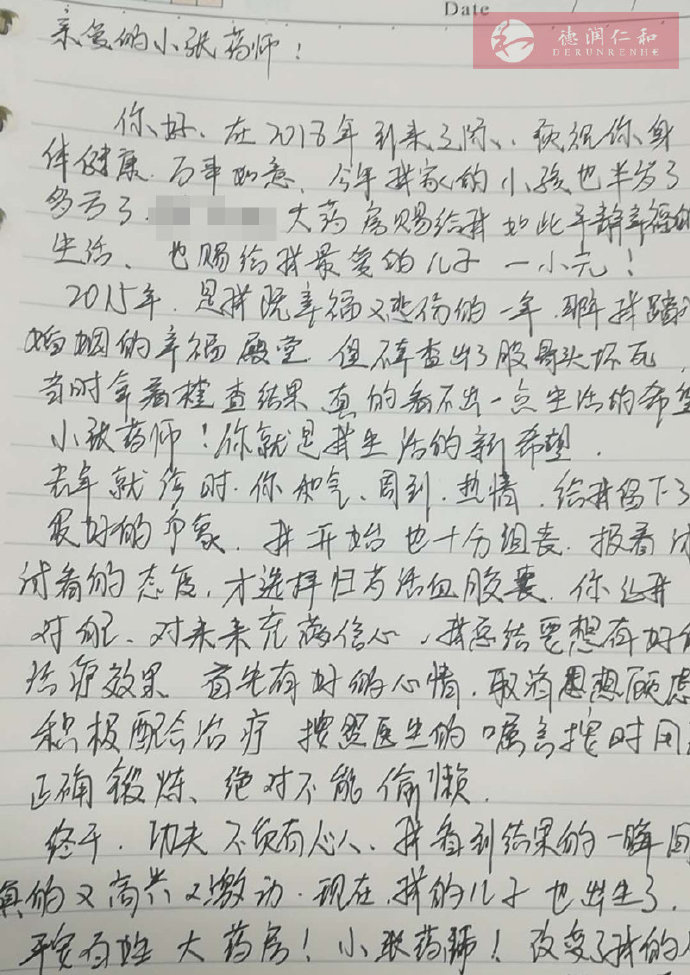 Date
德润仁和
DERUNRENHE
亲爱的小张药师！
你好、在2018年到来之际、预祝你身
体健康.百事如意、今年我家的小孩也半岁
多了. 大药房赐给我如此平静幸福的
生活、也赐给我最爱的儿子一小元！
2015年.是我既幸福又悲伤的一年.那年我踏
婚姻的幸福殿堂.但不幸查出了股骨头坏死，
当时拿着检查结果真的看不出一点生活的希望
小张药师！你就是我生活的新希望.
去年就诊时.你和气、周到.热情.给我留下了
很好的印象.我开始也十分沮丧.报着试
试看的态度，才选择归芍活血胶囊.你让我
对自己、对未来充满信心，我总结要想有好的
治疗效果 首先有好的心情.取消思想顾虑
积极配合治疗 按照医生的嘱言按时用
正确锻炼、绝对不能偷懒.
终于.功夫不负有心人、我看到结果的一瞬间
真的又高兴又激动.现在.我的儿子也出生了.
平安百姓大药房！小张药师！改变了我的